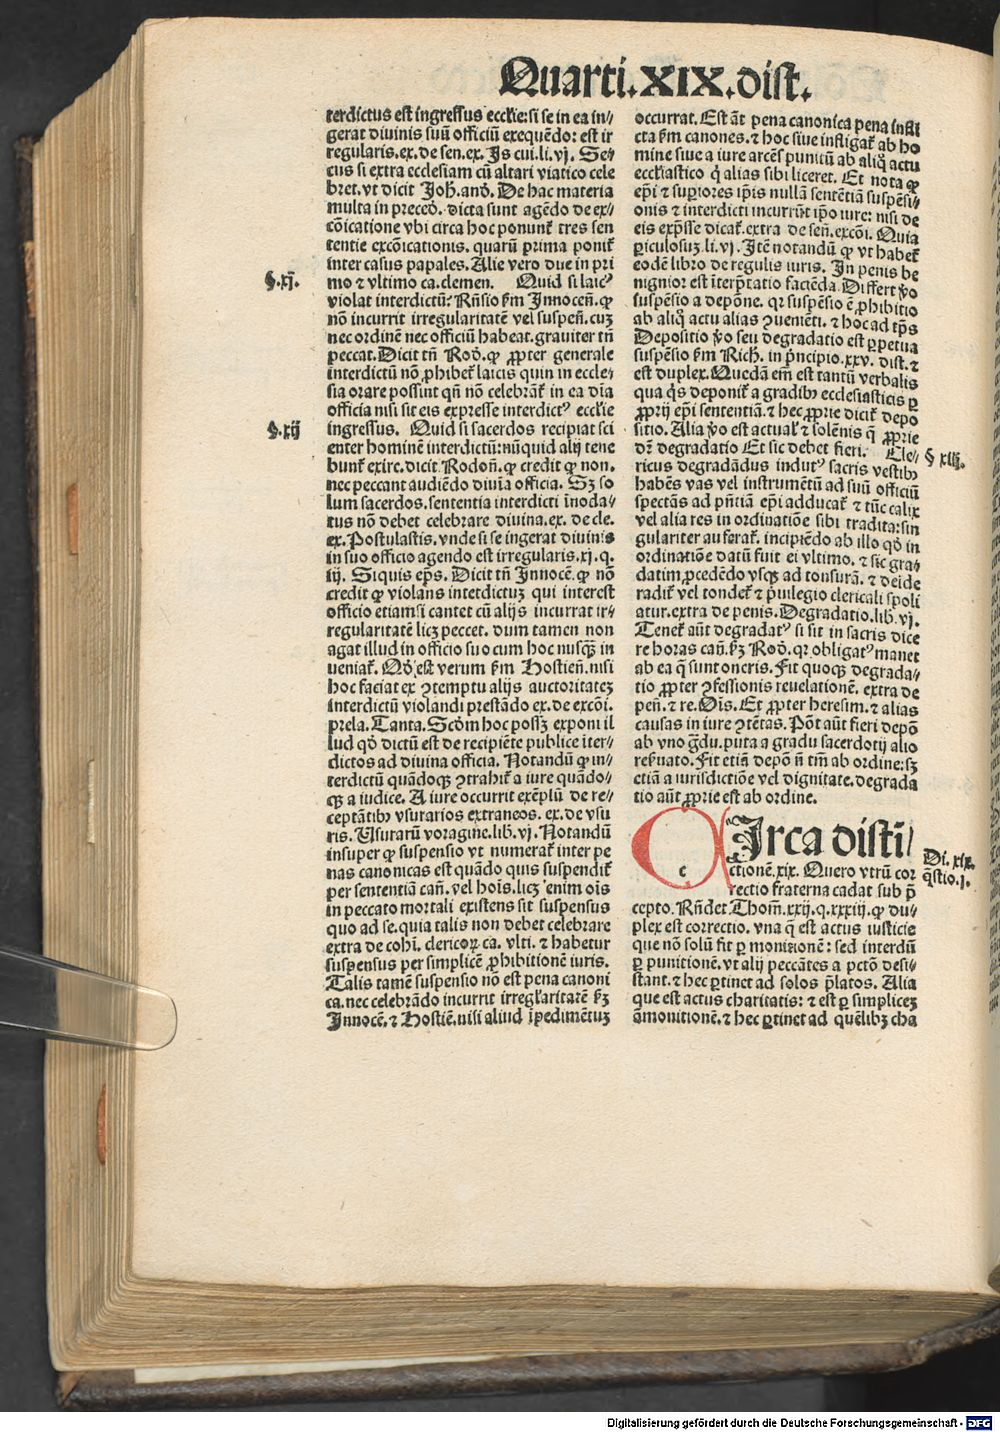 Quarti.XIX.dist.
terdictus est ingressus eccl̄ie: si se in ea in//
gerat diuinis suū officiū exequēdo: est ir
regularis.ex.de sen.ex. Is cui.li.vj. Se/
cus si extra ecclesiam cū altari viatico cele
bret. vt dicit Joh̄. and̄. De hac materia
multa in preced̄. dicta sunt agēdo de ex/
cōicatione vbi circa hoc ponunt̄ tres sen
tentie excōicationis. quarū prima ponit̄
inter casus papales. Alie vero due in pri
§.xj. mo ⁊ vltimo ca.clemen. Quid si laic⁹
violat interdictū: Rn̄sio ẜm Innocen̄. ꝙ
nō incurrit irregularitatē vel suspen̄. cuꝫ
nec ordinē nec officiū habeat. grauiter tn̄
peccat. Dicit tn̄ Rod̄. ꝙ ꝓpter generale
interdictū nō ꝓhibet̄ laicis quin in eccle/
sia orare possint qn̄ nō celebrāt̄ in ea diā
officia nisi sit eis expresse interdict⁹ eccl̄ie
§.xij ingressus. Quid si sacerdos recipiat sci
enter hominē interdictū: nūquid alij tene
bunt̄ exire. dicit Rodon̄. ꝙ credit ꝙ non.
nec peccant audiēdo diuīa officia. Sꝫ so
lum sacerdos. sententia interdicti īnoda/
tus nō debet celebrare diuina. ex. de cle.
ex. Postulastis. vnde si se ingerat diuinis
in suo officio agendo est irregularis. xj. q.
iij. Si quis ep̄s. Dicit tn̄ Innocē. ꝙ nō
credit ꝙ violans intetdictuꝫ qui interest
officio etiamsi cantet cū alijs incurrat ir/
regularitatē licꝫ peccet. dum tamen non
agat illud in officio suo cum hoc nusqꝫ in
ueniat̄. Qd̄ est verum ẜm Hostien̄. nisi
hoc faciat ex ↄtemptu alijs auctoritateꝫ
interdictū violandi prestādo ex. de excōi.
prela. Tanta. Scd̄m hoc possꝫ exponi il
lud qd̄ dictū est de recipiēte publice īter/
dictos ad diuina officia. Notandū ꝙ in/
terdictū quādoqꝫ ↄtrahit̄ a iure quādo/
qꝫ a iudice. A iure occurrit exēplū de re/
ceptātibꝫ vsurarios extraneos. ex. de vsu
ris. Usurarū voragine. lib. vj. Notandū
insuper ꝙ suspensio vt numerat̄ inter pe
nas canonicas est quādo quis suspendit̄
per sententiā can̄. vel hoīs. licꝫ enim oīs
in peccato mortali existens sit suspensus
quo ad se. quia talis non debet celebrare
extra de cohī. clericoꝝ ca. vlti. ⁊ habetur
suspensus per simplicē ꝓhibitionē iuris.
Talis tamē suspensio nō est pena canoni
ca. nec celebrādo incurrit irregl̄aritatē ẜꝫ
Innocē. ⁊ Hostiē. nisi aliud īpedimētuꝫ
occurrat. Est āt pena canonica pena infli
cta ẜm canones. ⁊ hoc siue infligat̄ ab ho
mine siue a iure arcēs punitū ab aliq̄ actu
ecclīastico q̄ alias sibi liceret. Et nota ꝙ
ep̄i ⁊ suꝑiores ip̄is nullā sentētiā suspēsi/
onis ⁊ interdicti incurrūt ip̄o iure: nisi de
eis exp̄sse dicat̄. extra de sen̄. excōi. Quia
ꝑiculosuꝫ. li. vj. Itē notandū ꝙ vt habet̄
eodē libro de regulis iuris. In penis be
nignior est īterp̄tatio faciēda. Differt v̄o
suspēsio a depōne. qr suspēsio ē ꝓhibitio
ab aliq̄ actu alias ↄueniēti. ⁊ hoc ad tp̄s
Depositio v̄o seu degradatio est ꝑpetua
suspēsio ẜm Rich̄. in p̄ncipio. xxv. dist. ⁊
est duplex. Quedā em̄ est tantū verbalis
qua q̄s deponit̄ a gradibꝫ ecclesiasticis ꝑ
ꝓprij ep̄i sententiā. ⁊ hec ꝓprie dicit̄ depo
sitio. Alia v̄o est actual̄ ⁊ solēnis q̄ ꝓprie
dr̄ degradatio Et sic debet fieri. Cle/ § xiij.
ricus degradādus indut⁹ sacris vestibꝫ
habēs vas vel instrumētū ad suū officiū
spectās ad pn̄tiā ep̄i adducat̄ ⁊ tūc calix
vel alia res in ordinatiōe sibi tradita: sin
gulariter auferat̄. incipiēdo ab illo qd̄ in
ordinatiōe datū fuit ei vltimo. ⁊ sic gra/
datim ꝓcedēdo vsqꝫ ad tonsurā. ⁊ deīde
radit̄ vel tondet̄ ⁊ p̄uilegio clericali spoli
atur. extra de penis. Degradatio. lib. vj.
Tenet̄ aūt degradat⁹ si sit in sacris dice
re horas can̄. ẜꝫ Rod̄. qr obligat⁹ manet
ab ea q̄ sunt oneris. Fit quoqꝫ degrada/
tio ꝓpter ↄfessionis reuelationē. extra de
pen̄. ⁊ re. Oīs. Et ꝓpter heresim. ⁊ alias
causas in iure ↄtētas. Pōt aūt fieri depō
ab vno gd̄u. puta a gradu sacerdotij alio
reẜuato. Fit etiā depōn̄ n̄ tm̄ ab ordine: sꝫ
etiā a iurisdictiōe vel dignitate. degrada
tio aūt ꝓprie est ab ordine.
c Irca distī/
Di. xix. q̄stio. j.
ctionē. xix. Quero vtrū cor
rectio fraterna cadat sub p̄
cepto. Rn̄det Thom̄. xxij. q. xxxiij. ꝙ du/
plex est correctio. vna q̄ est actus iusticie
que nō solū fit ꝑ monitionē: sed interdū
ꝑ punitionē. vt alij peccātes a pctō desi/
stant. ⁊ hec ꝑtinet ad solos p̄latos. Alia
que est actus charitatis: ⁊ est ꝑ simpliceꝫ
āmonitionē. ⁊ hec ꝑtinet ad quēlibꝫ cha
Digitalisierung gefördert durch die Deutsche Forschungsgemeinschaft - DFG